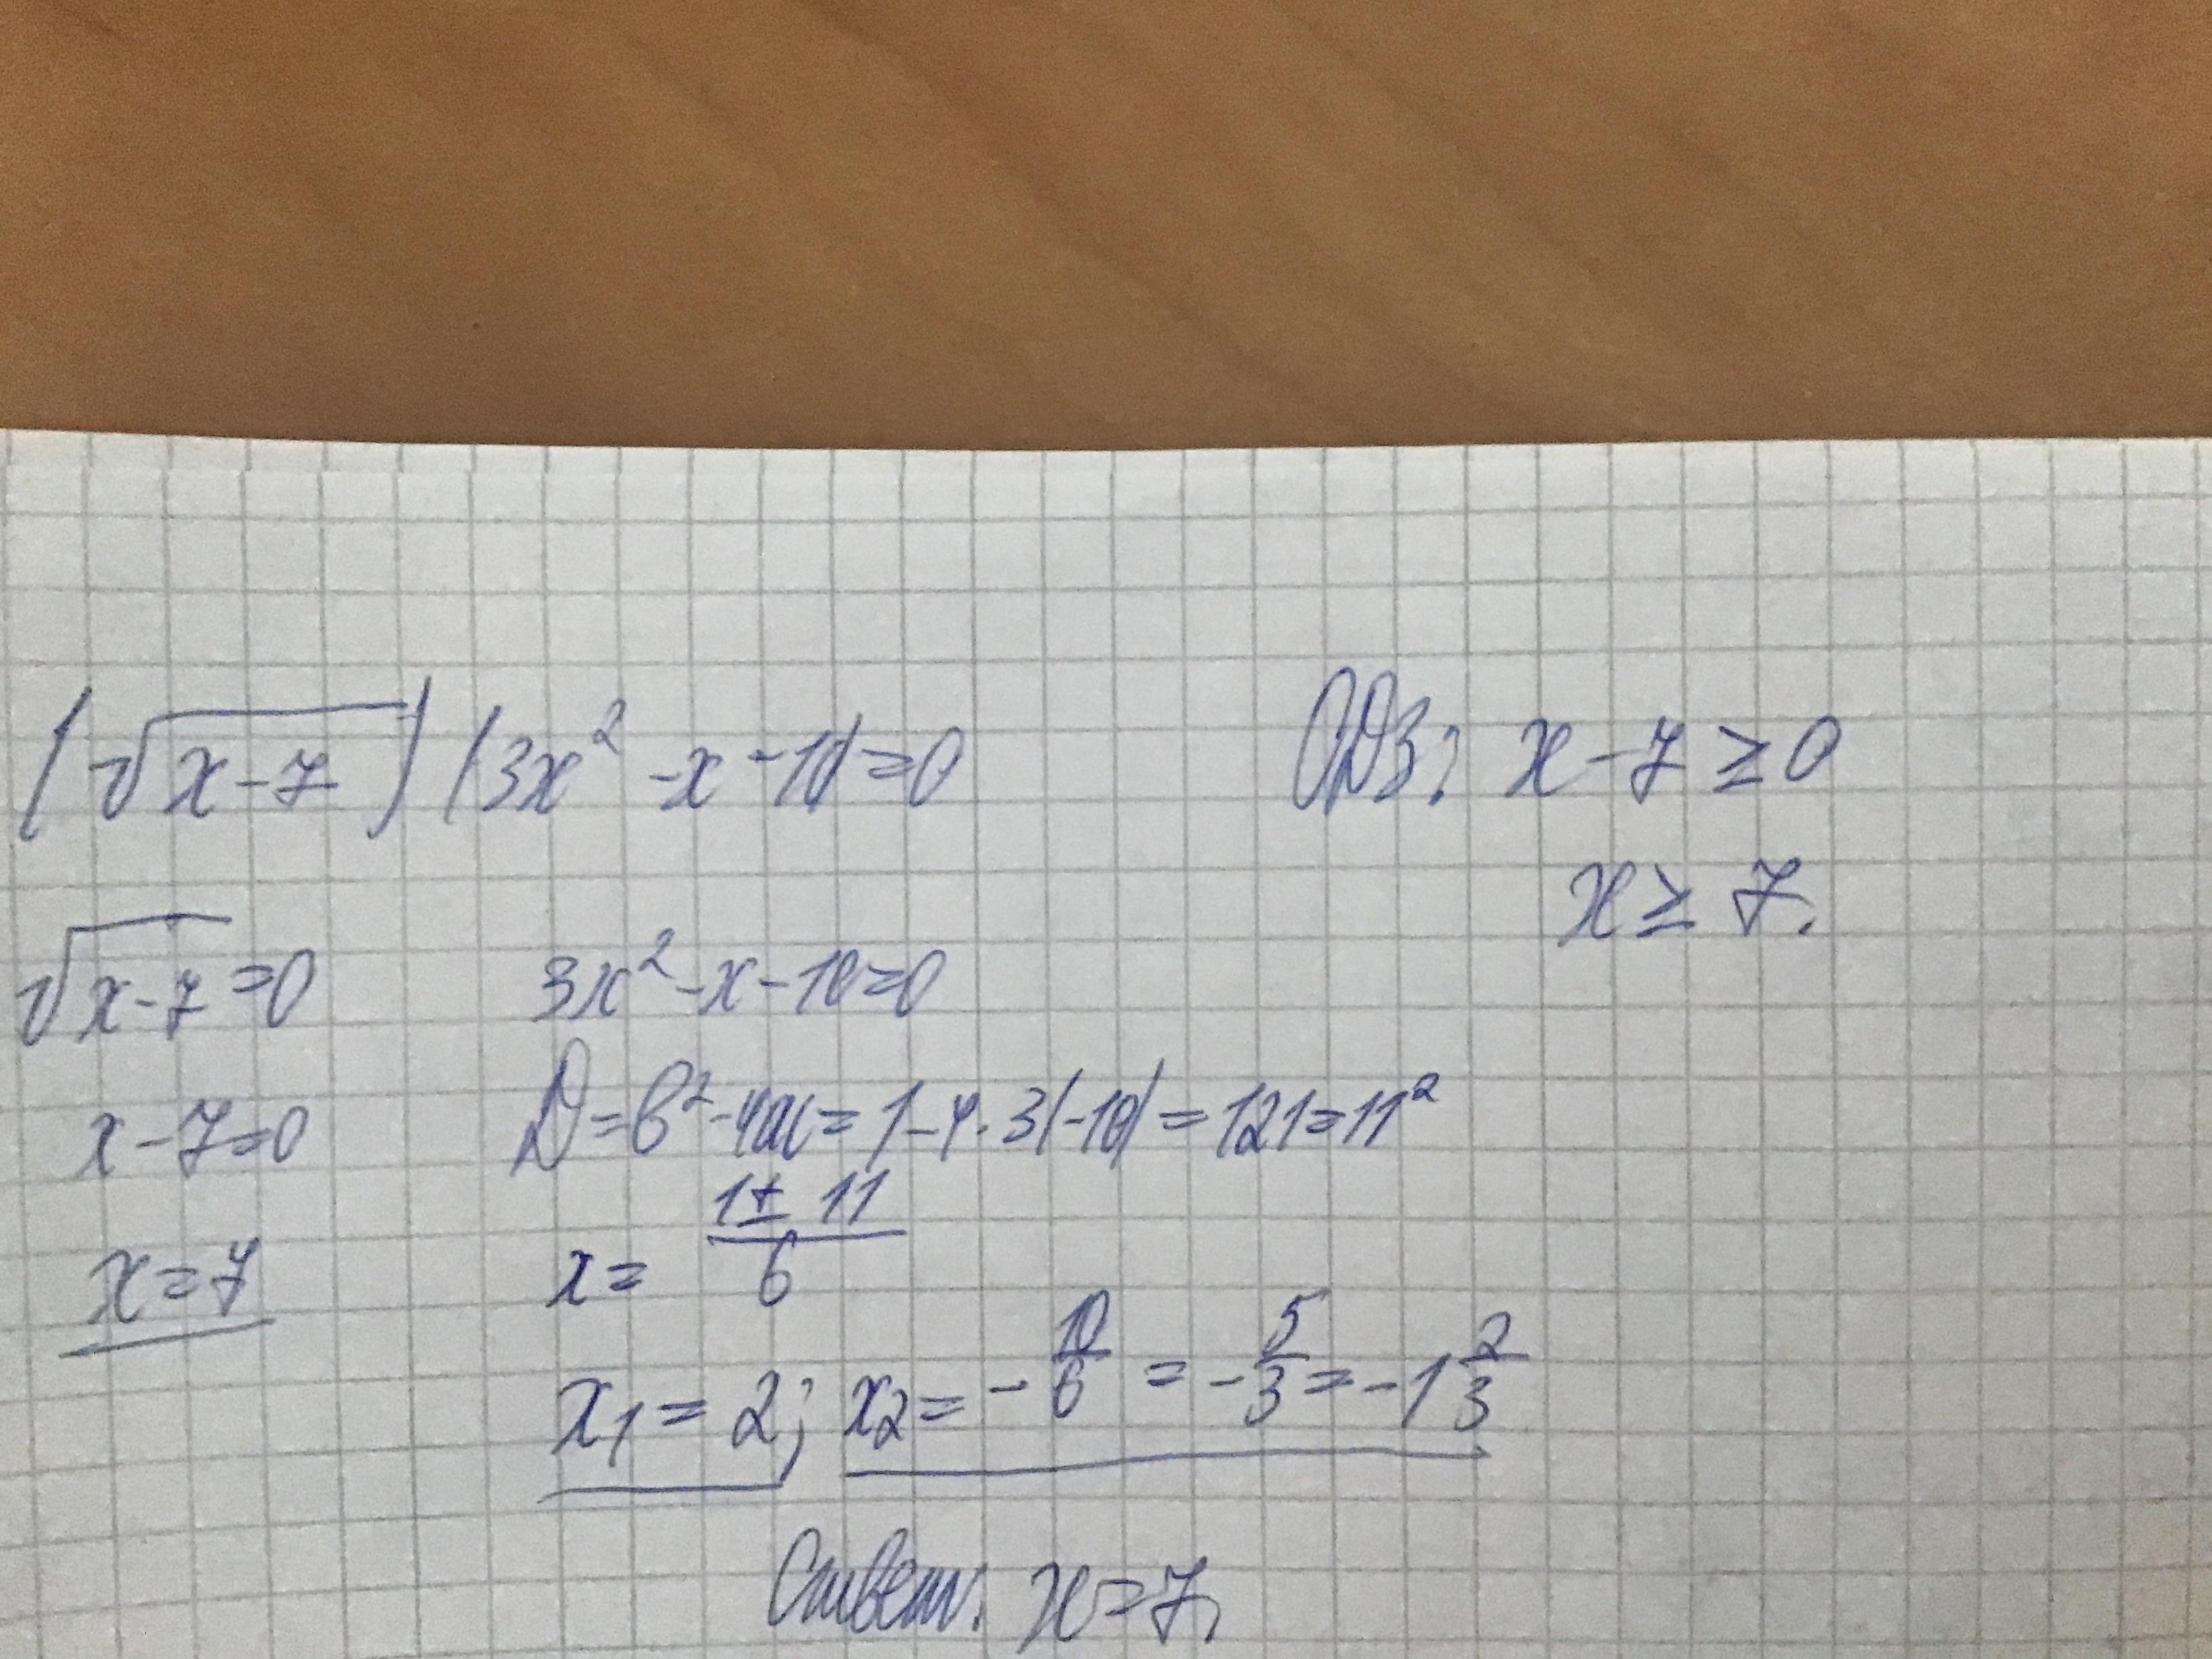 (√x-7)(3x² -x -10)=0 ОДЗ: x-7≥0
x≥7.
√x-7=0 3x²-x-10=0
x-7=0 D=b²-4ac=1-4·3(-10)=121=11²
x=7 x= 1±11/6
x₁=2; x₂=-10/6=-5/3=-1 2/3
Ответ: x=7,